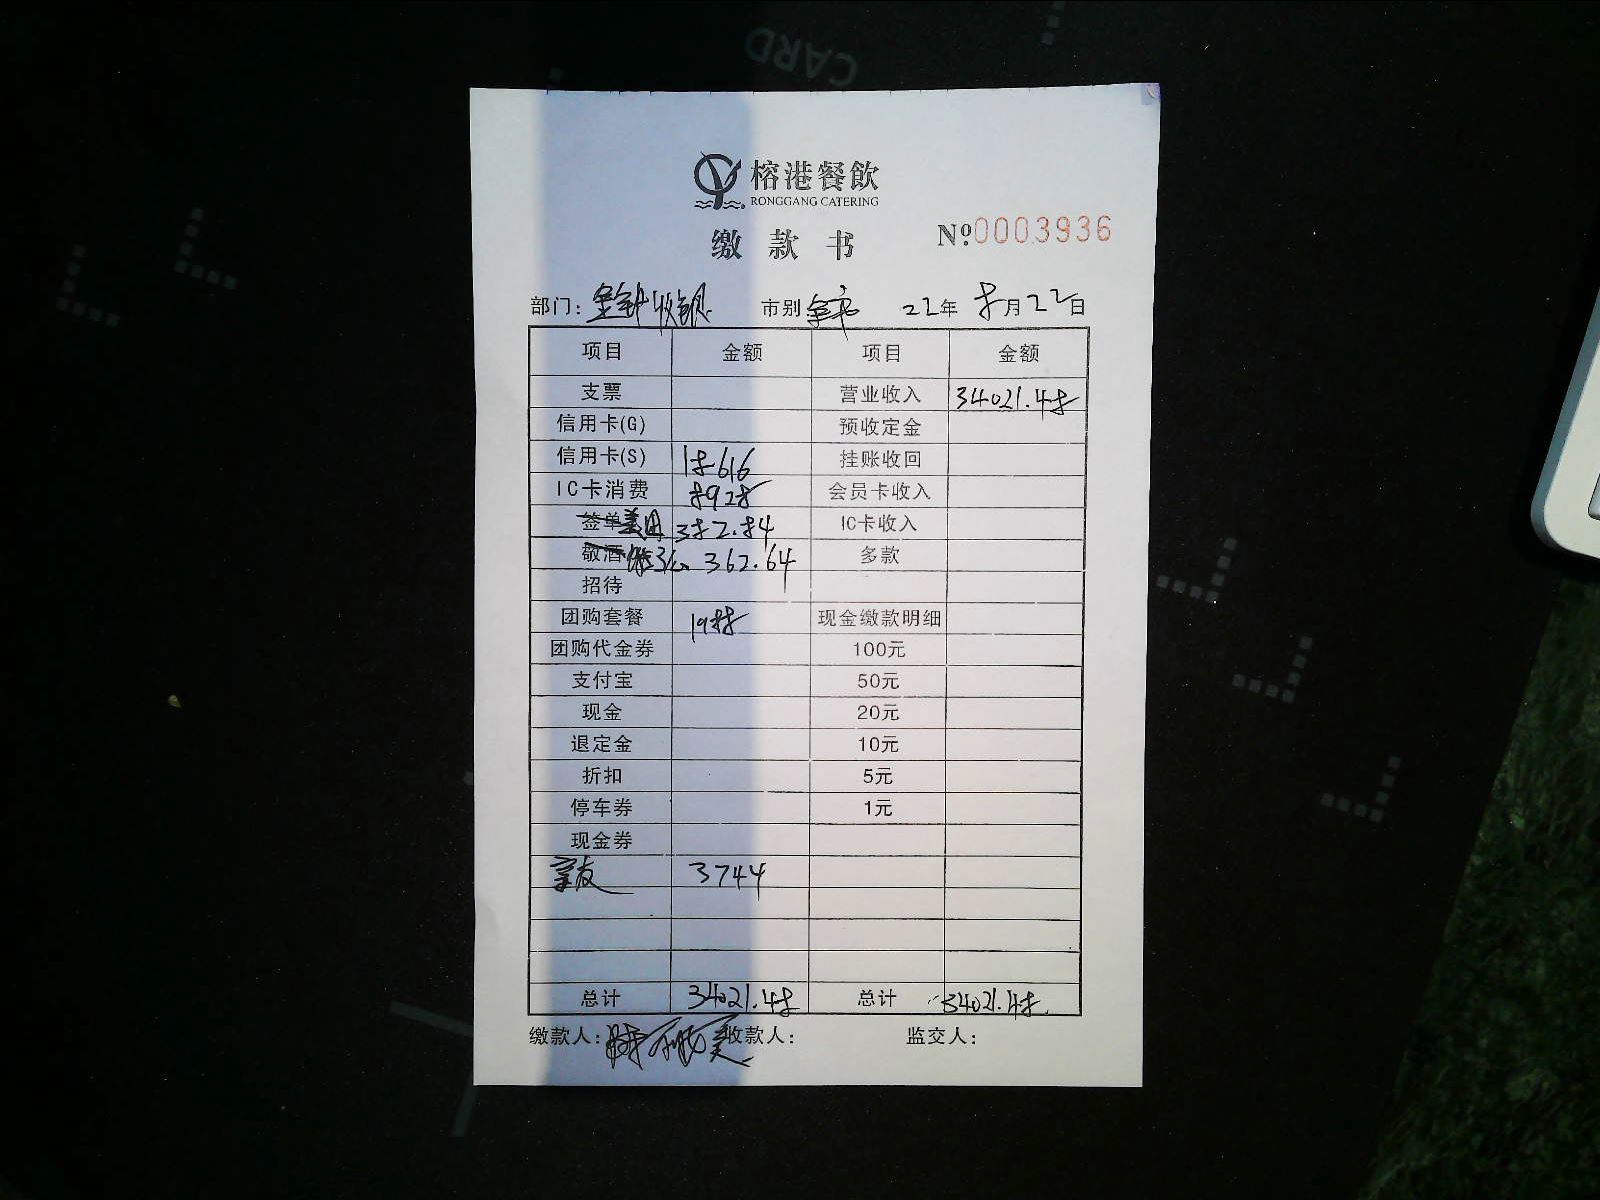 CARD
榕港餐飲
RONGGANG CATERING
缴款书 Nº:0003936
部门: 收银 市别 全市 22年8月22日
项目 金额 项目 金额
支票 营业收入 34021.48
信用卡(G) 预收定金
信用卡(S) 18616 挂账收回
IC卡消费 8928 会员卡收入
签单 美团 382.84 IC卡收入
敬酒 362.64 多款
招待
团购套餐 1988 现金缴款明细
团购代金券 100元
支付宝 50元
现金 20元
退定金 10元
折扣 5元
停车券 1元
现金券
3744
总计 34021.48 总计 34021.48
缴款人: 收款人: 监交人: